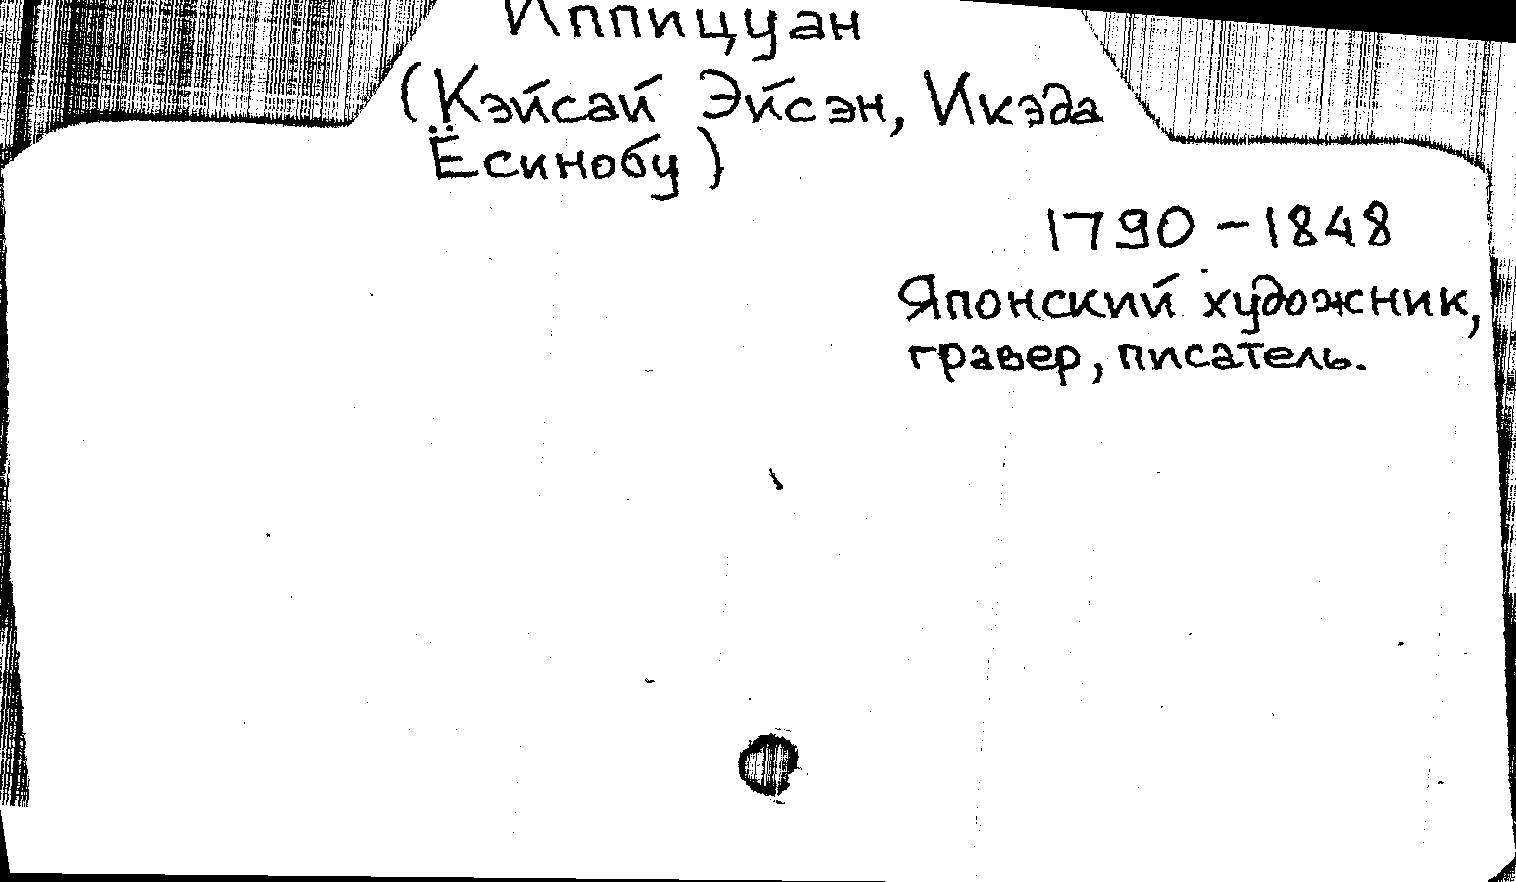 Иппицуан
(Кэйсай Эйсэн, Икэда
Ёсинобу)
1790 – 1848
Японский художник,
гравер, писатель.